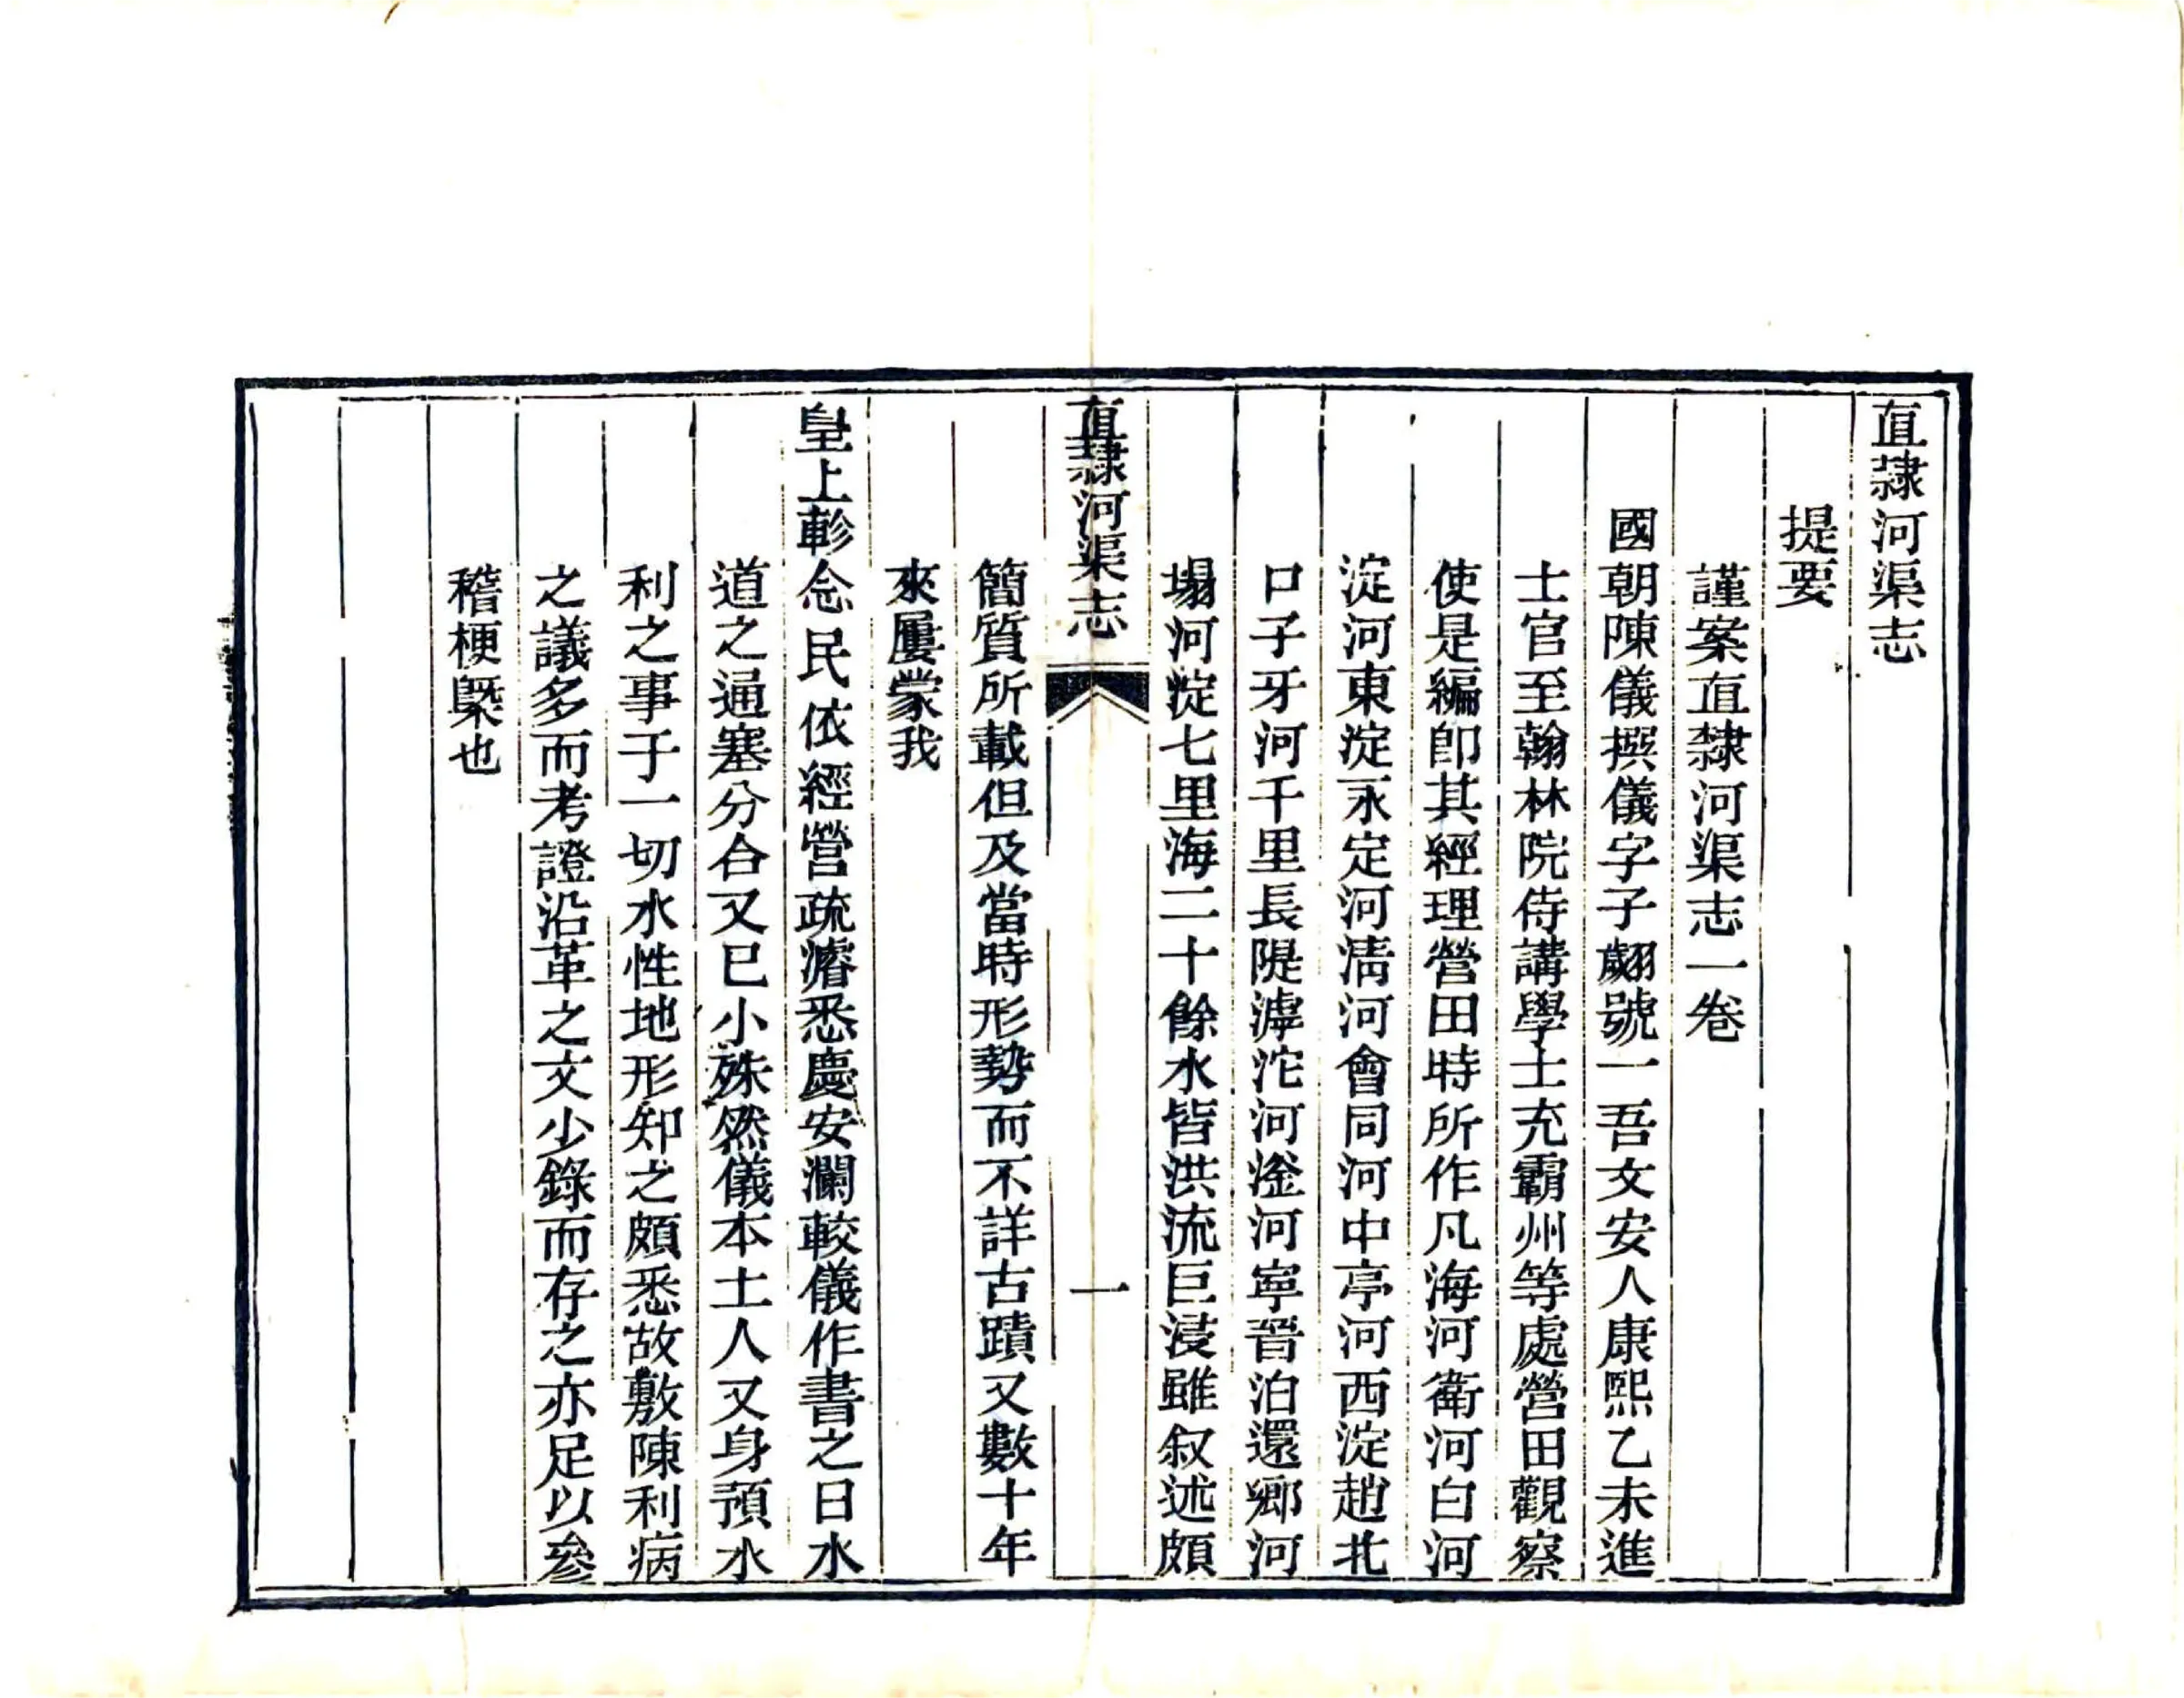 直隸河渠志
提要
謹案直隸河渠志一卷
國朝陳儀撰儀字子翽號一吾文安人康熙乙未進
士官至翰林院侍講學士充霸州等處營田觀察
使是編卽其經理營田時所作凡海河衛河白河
淀河東淀永定河淸河會同河中亭河西淀趙北
口子牙河千里長隄滹沱河滏河寧晉泊還鄉河
塌河淀七里海二十餘水皆洪流巨浸雖叙述頗
直隸河渠志
一
簡質所載但及當時形勢而不詳古蹟又數十年
來屢蒙我
皇上軫念民依經營疏濬悉慶安瀾較儀作書之日水
道之通塞分合又已小殊然儀本土人又身預水
利之事于一切水性地形知之頗悉故敷陳利病
之議多而考證沿革之文少錄而存之亦足以參
稽梗槩也